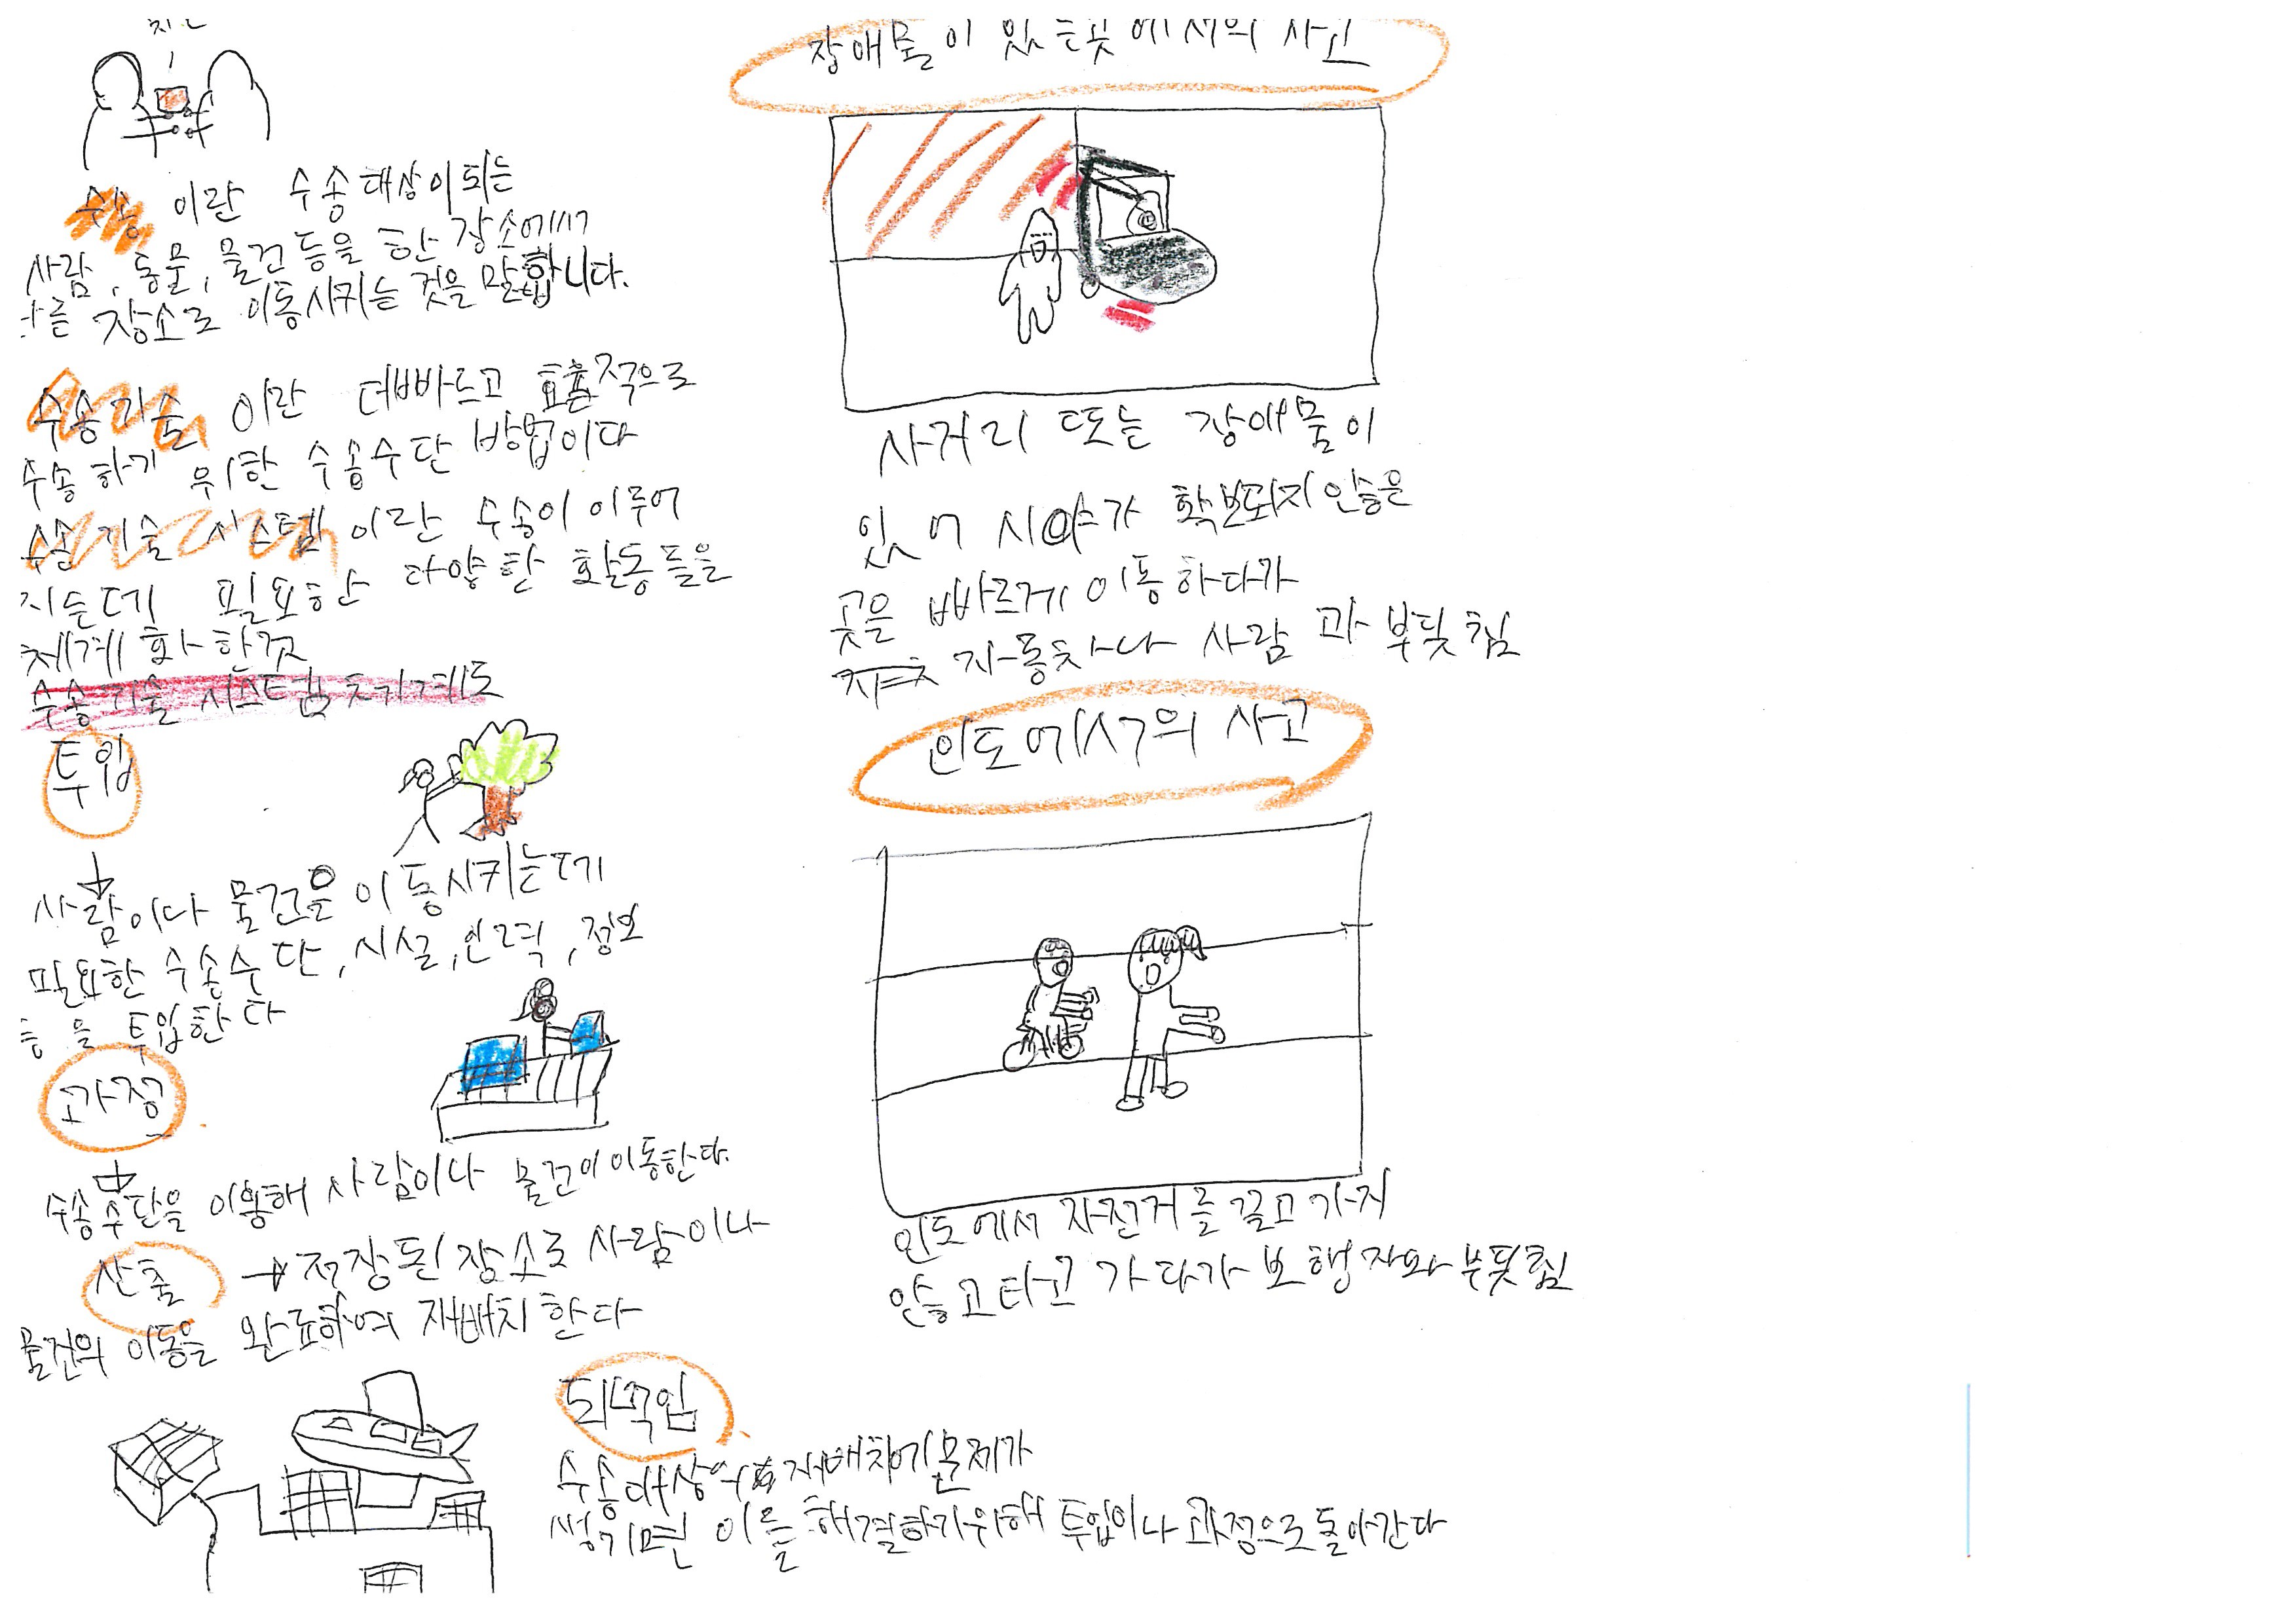 수송 이란 수송대상이되는
사람, 동물, 물건등을 한 장소에서
다른 장소로 이동시키는 것을 말합니다.
수송기술 이란 더빠르고 효율적으로
수송하기 위한 수송수단 방법이다
수송 기술 시스템 이란 수송이 이루어
지는데 필요한 다양한 활동들을
체계화 한것
수송기술 시스템
투입
사람이나 물건을 이동시키는데
필요한 수송수단, 시설, 인력, 정보
등 을 투입한다
과정
수송수단을 이용해 사람이나 물건이 이동한다.
산출 → 적장된 장소로 사람이나
물건의 이동을 완료하여 재배치 한다
되먹임
수송대상의 재배치에 문제가
생기면 이를 해결하기위해 투입이나 과정으로 돌아간다
장애물이 있는곳에서의 사고
사거리 또는 장애물이
있어 시야가 확보되지 안슴은
곳을 빠르게 이동하다가
자동차나 사람 과 부딪침
인도에서의 사고
인도에서 자전거를 끌고 가지
안슴고 타고 가다가 보행자와 부딪침